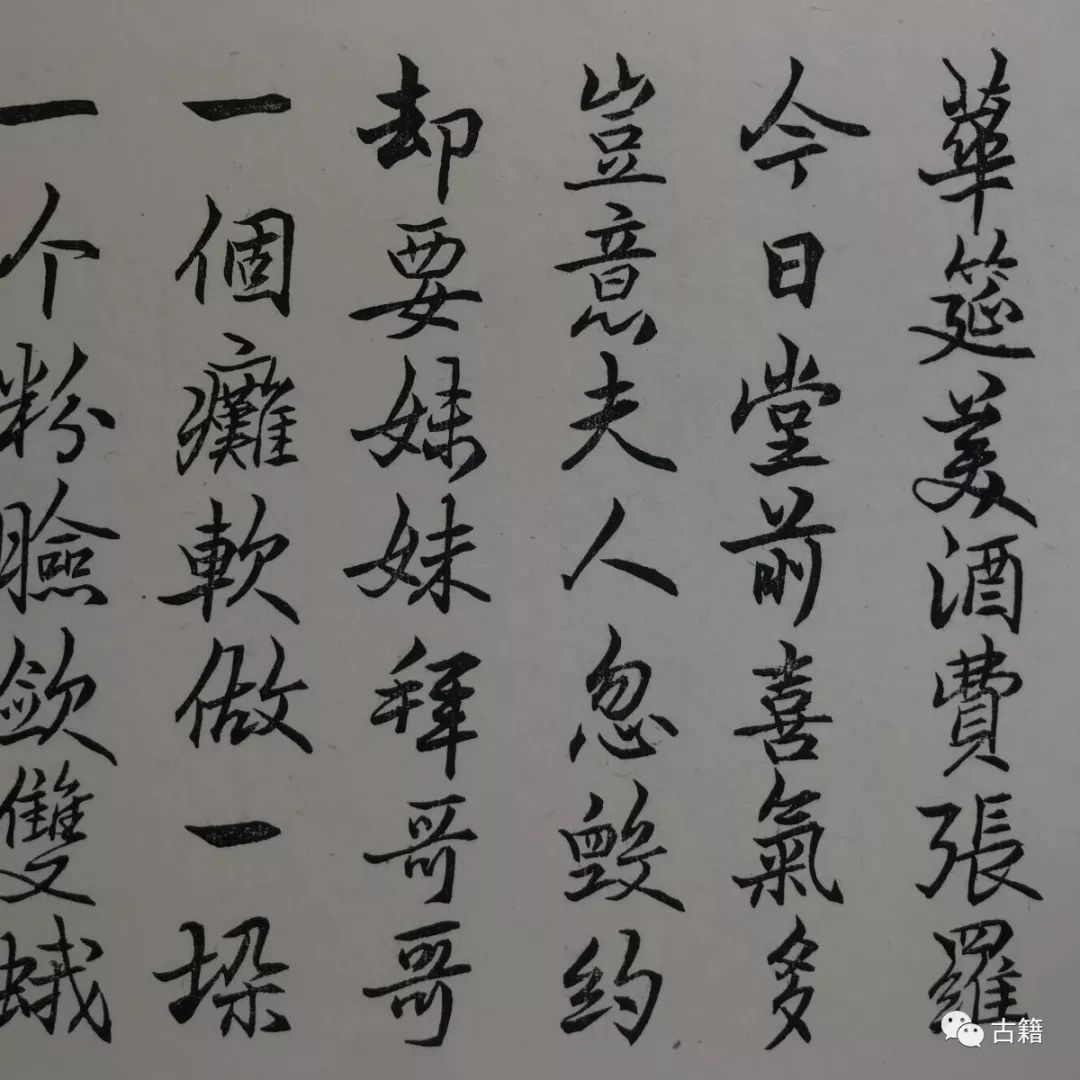 華筵美酒費張羅
今日堂前喜氣多
豈意夫人忽毀約
却要妹妹拜哥哥
一個癱軟做一垜
一个粉臉歛雙蛾
古籍